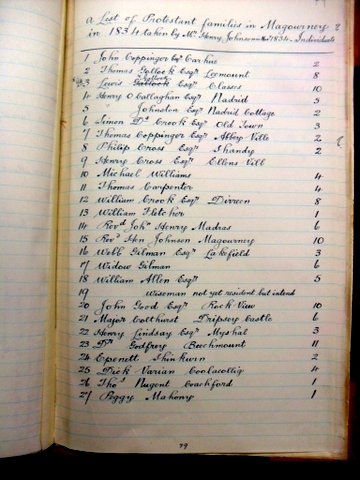 A List of Protestant families in Magourney
in 1834 taken by Mr Henry Johnson 1834. Individuals
1 John Coppinger Esqr Carhue 2
2 Thomas Gollock Esqr Leemount 8
3 Lewis Gollock Esqr Classes 10
4 Henry O'Callaghan Esqr Nadrid 5
5 " Johnston Esqr Nadrid Cottage 2
6 Simon Dr Crook Esqr Old Town 3
7 Thomas Coppinger Esqr Abbey Ville 2
8 Philip Cross Esqr Shandy 2
9 Henry Cross Esqr Ellens Vill
10 Michael Williams 4
11 Thomas Carpenter 4
12 William Crook Esqr Dirreen 8
13 William Fletcher 1
14 Revd John Henry Madras 6
15 Revd Hen Johnson Magourney 10
16 Webb Gilman Esqr Lakefield 3
17 Widow Gilman 6
18 William Allen Esqr 5
19 Wiseman not yet resident but intend
20 John Good Esqr Rock View 10
21 Major Colthurst Dripsey Castle 6
22 Henry Lindsay Esqr Myshal 3
23 Dr Godfrey Beechmount 11
24 Epenett Shinkwin 2
25 Dick Varian Coolacollig 4
26 Thos Nugent Coachford 1
27 Peggy Mahony 1
79